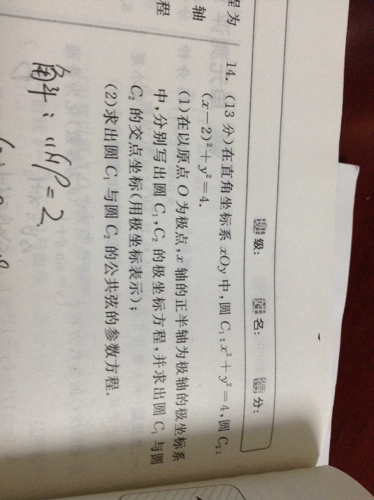 程为
轴
级: 姓名: 得分:
14. (13 分)在直角坐标系 xOy 中,圆 C₁:x²+y²=4,圆 C₂:
(x-2)²+y²=4.
(1)在以原点 O 为极点,x 轴的正半轴为极轴的极坐标系
中,分别写出圆 C₁,C₂ 的极坐标方程,并求出圆 C₁ 与圆
C₂ 的交点坐标(用极坐标表示);
(2)求出圆 C₁ 与圆 C₂ 的公共弦的参数方程.
解: (1) P=2